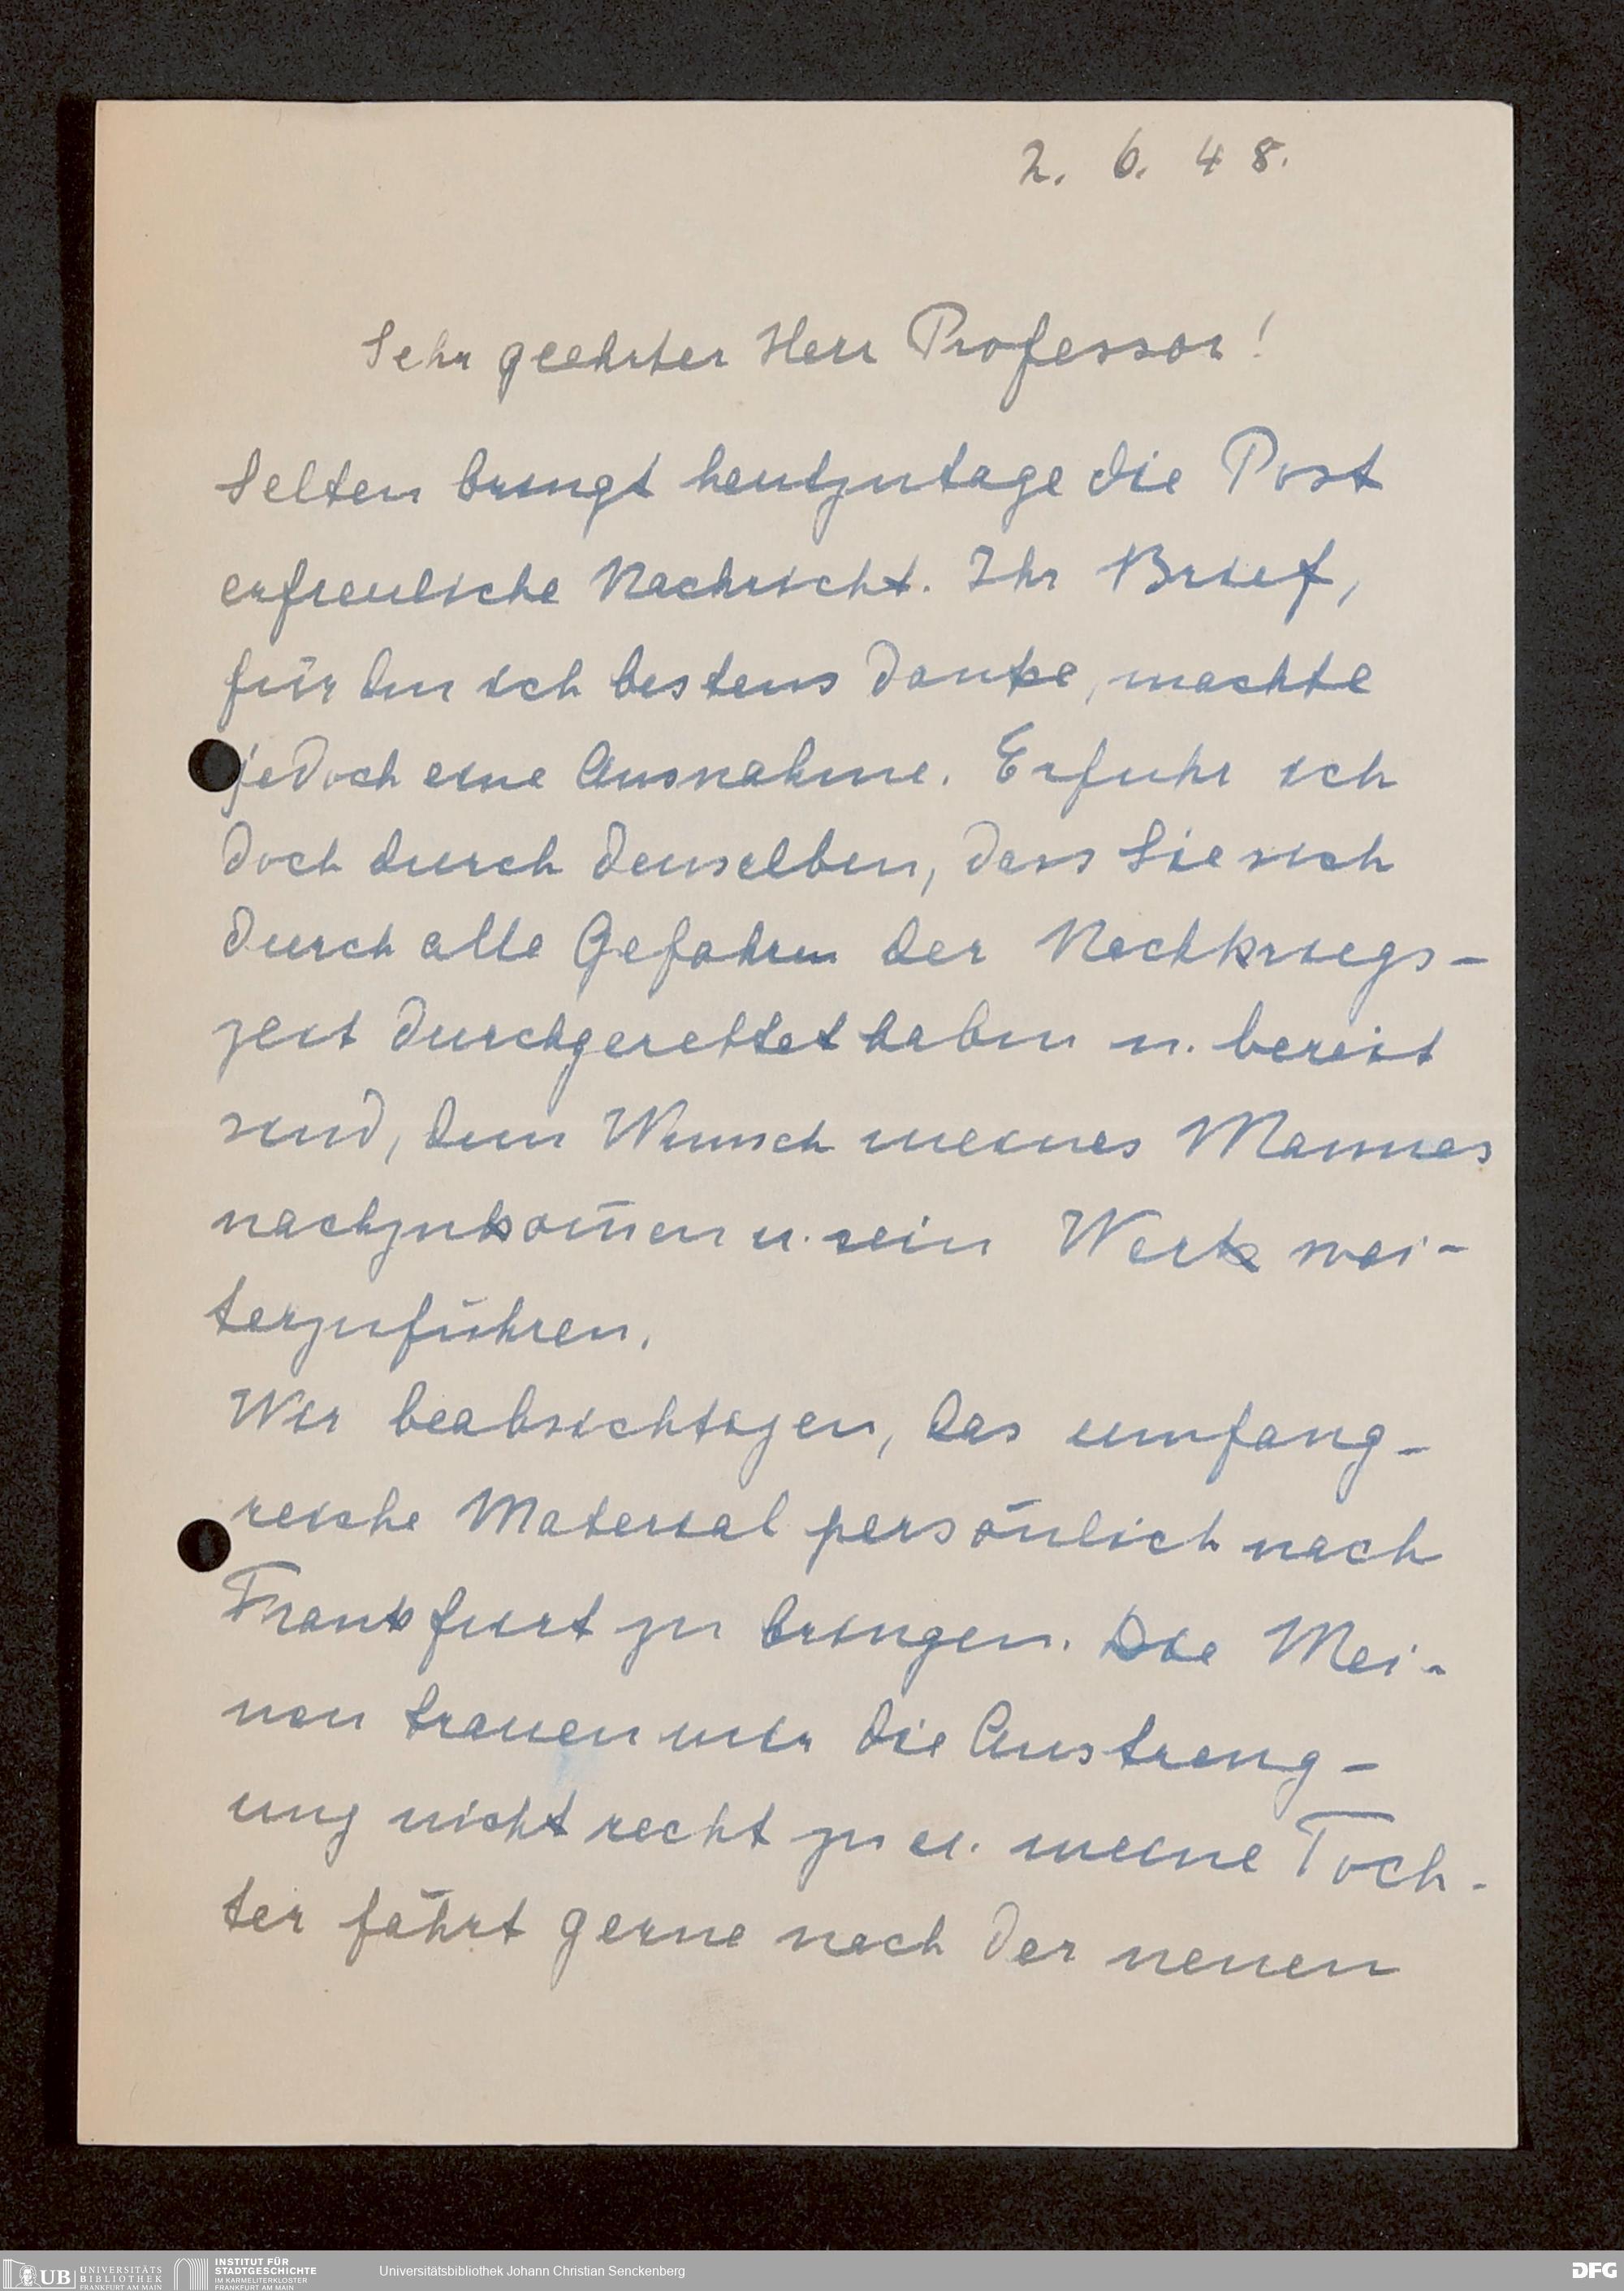 2. 6. 48.
Sehr geehrter Herr Professor!
Selten bringt heutzutage die Post
erfreuliche Nachricht. Ihr Brief,
für den ich bestens danke, machte
jedoch eine Ausnahme. Erfuhr ich
doch durch denselben, dass Sie sich
durch alle Gefahren der Nachkriegs-
zeit durchgerettet haben u. bereit
sind, dem Wunsch meines Mannes
nachzukom̄en u. sein Werk wei-
terzuführen.
Wir beabsichtigen, das umfang-
reiche Material persönlich nach
Frankfurt zu bringen. Die Mei-
nen trauen mir die Anstreng-
ung nicht recht zu u. meine Toch-
ter fährt gerne nach der neuen
UB UNIVERSITÄTS
BIBLIOTHEK
FRANKFURT AM MAIN
INSTITUT FÜR
STADTGESCHICHTE
IM KARMELITERKLOSTER
FRANKFURT AM MAIN
Universitätsbibliothek Johann Christian Senckenberg
DFG